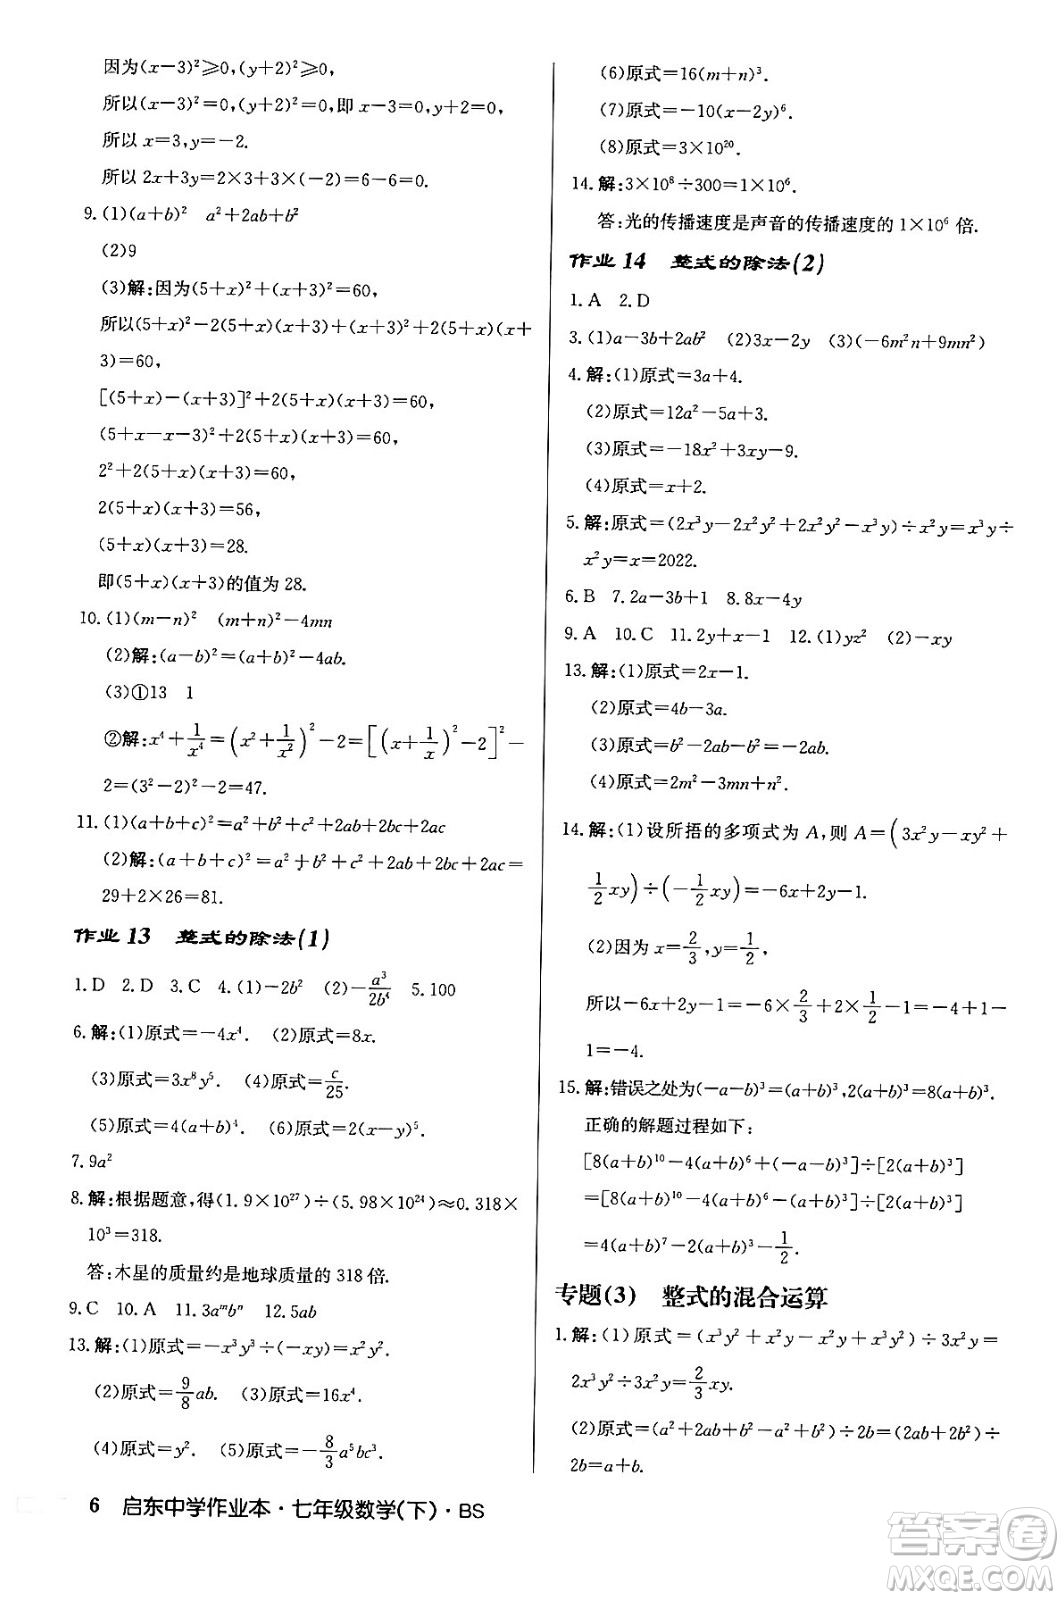 因为(x－3)²≥0,(y＋2)²≥0,
所以(x－3)²＝0,(y＋2)²＝0,即 x－3＝0,y＋2＝0,
所以 x＝3,y＝－2.
所以 2x＋3y＝2×3＋3×(－2)＝6－6＝0.
9. (1)(a＋b)² a²＋2ab＋b²
(2)9
(3)解:因为(5＋x)²＋(x＋3)²＝60,
所以(5＋x)²－2(5＋x)(x＋3)＋(x＋3)²＋2(5＋x)(x＋
3)＝60,
[(5＋x)－(x＋3)]²＋2(5＋x)(x＋3)＝60,
(5＋x－x－3)²＋2(5＋x)(x＋3)＝60,
2²＋2(5＋x)(x＋3)＝60,
2(5＋x)(x＋3)＝56,
(5＋x)(x＋3)＝28.
即(5＋x)(x＋3)的值为 28.
10. (1)(m－n)² (m＋n)²－4mn
(2)解:(a－b)²＝(a＋b)²－4ab.
(3)①13 1
②解:x⁴＋1/x⁴＝(x²＋1/x²)²－2＝[(x＋1/x)²－2]²－
2＝(3²－2)²－2＝47.
11. (1)(a＋b＋c)²＝a²＋b²＋c²＋2ab＋2bc＋2ac
(2)解:(a＋b＋c)²＝a²＋b²＋c²＋2ab＋2bc＋2ac＝
29＋2×26＝81.
作业 13 整式的除法(1)
1. D 2. D 3. C 4. (1)－2b² (2)－a³/2b⁴ 5. 100
6. 解:(1)原式＝－4x⁴. (2)原式＝8x.
(3)原式＝3x⁸y⁵. (4)原式＝c/25.
(5)原式＝4(a＋b)⁴. (6)原式＝2(x－y)⁵.
7. 9a²
8. 解:根据题意,得(1.9×10²⁷)÷(5.98×10²⁴)≈0.318×
10³＝318.
答:木星的质量约是地球质量的 318 倍.
9. C 10. A 11. 3aᵐbⁿ 12. 5ab
13. 解:(1)原式＝－x³y³÷(－xy)＝x²y².
(2)原式＝9/8ab. (3)原式＝16x⁴.
(4)原式＝y². (5)原式＝－8/3a⁵bc³.
(6)原式＝16(m＋n)³.
(7)原式＝－10(x－2y)⁶.
(8)原式＝3×10²⁰.
14. 解:3×10⁸÷300＝1×10⁶.
答:光的传播速度是声音的传播速度的 1×10⁶ 倍.
作业 14 整式的除法(2)
1. A 2. D
3. (1)a－3b＋2ab² (2)3x－2y (3)(－6m²n＋9mn²)
4. 解:(1)原式＝3a＋4.
(2)原式＝12a²－5a＋3.
(3)原式＝－18x²＋3xy－9.
(4)原式＝x＋2.
5. 解:原式＝(2x³y－2x²y²＋2x²y²－x³y)÷x²y＝x³y÷
x²y＝x＝2022.
6. B 7. 2a－3b＋1 8. 8x－4y
9. A 10. C 11. 2y＋x－1 12. (1)yz² (2)－xy
13. 解:(1)原式＝2x－1.
(2)原式＝4b－3a.
(3)原式＝b²－2ab－b²＝－2ab.
(4)原式＝2m²－3mn＋n².
14. 解:(1)设所捂的多项式为 A,则 A＝(3x²y－xy²＋
1/2xy)÷(－1/2xy)＝－6x＋2y－1.
(2)因为 x＝2/3,y＝1/2,
所以－6x＋2y－1＝－6×2/3＋2×1/2－1＝－4＋1－
1＝－4.
15. 解:错误之处为(－a－b)³＝(a＋b)³,2(a＋b)³＝8(a＋b)³.
正确的解题过程如下:
[8(a＋b)¹⁰－4(a＋b)⁶＋(－a－b)³]÷[2(a＋b)³]
＝[8(a＋b)¹⁰－4(a＋b)⁶－(a＋b)³]÷[2(a＋b)³]
＝4(a＋b)⁷－2(a＋b)³－1/2.
专题(3) 整式的混合运算
1. 解:(1)原式＝(x³y²＋x²y－x²y＋x³y²)÷3x²y＝
2x³y²÷3x²y＝2/3xy.
(2)原式＝(a²＋2ab＋b²－a²＋b²)÷2b＝(2ab＋2b²)÷
2b＝a＋b.
6 启东中学作业本·七年级数学(下)·BS
答案圈